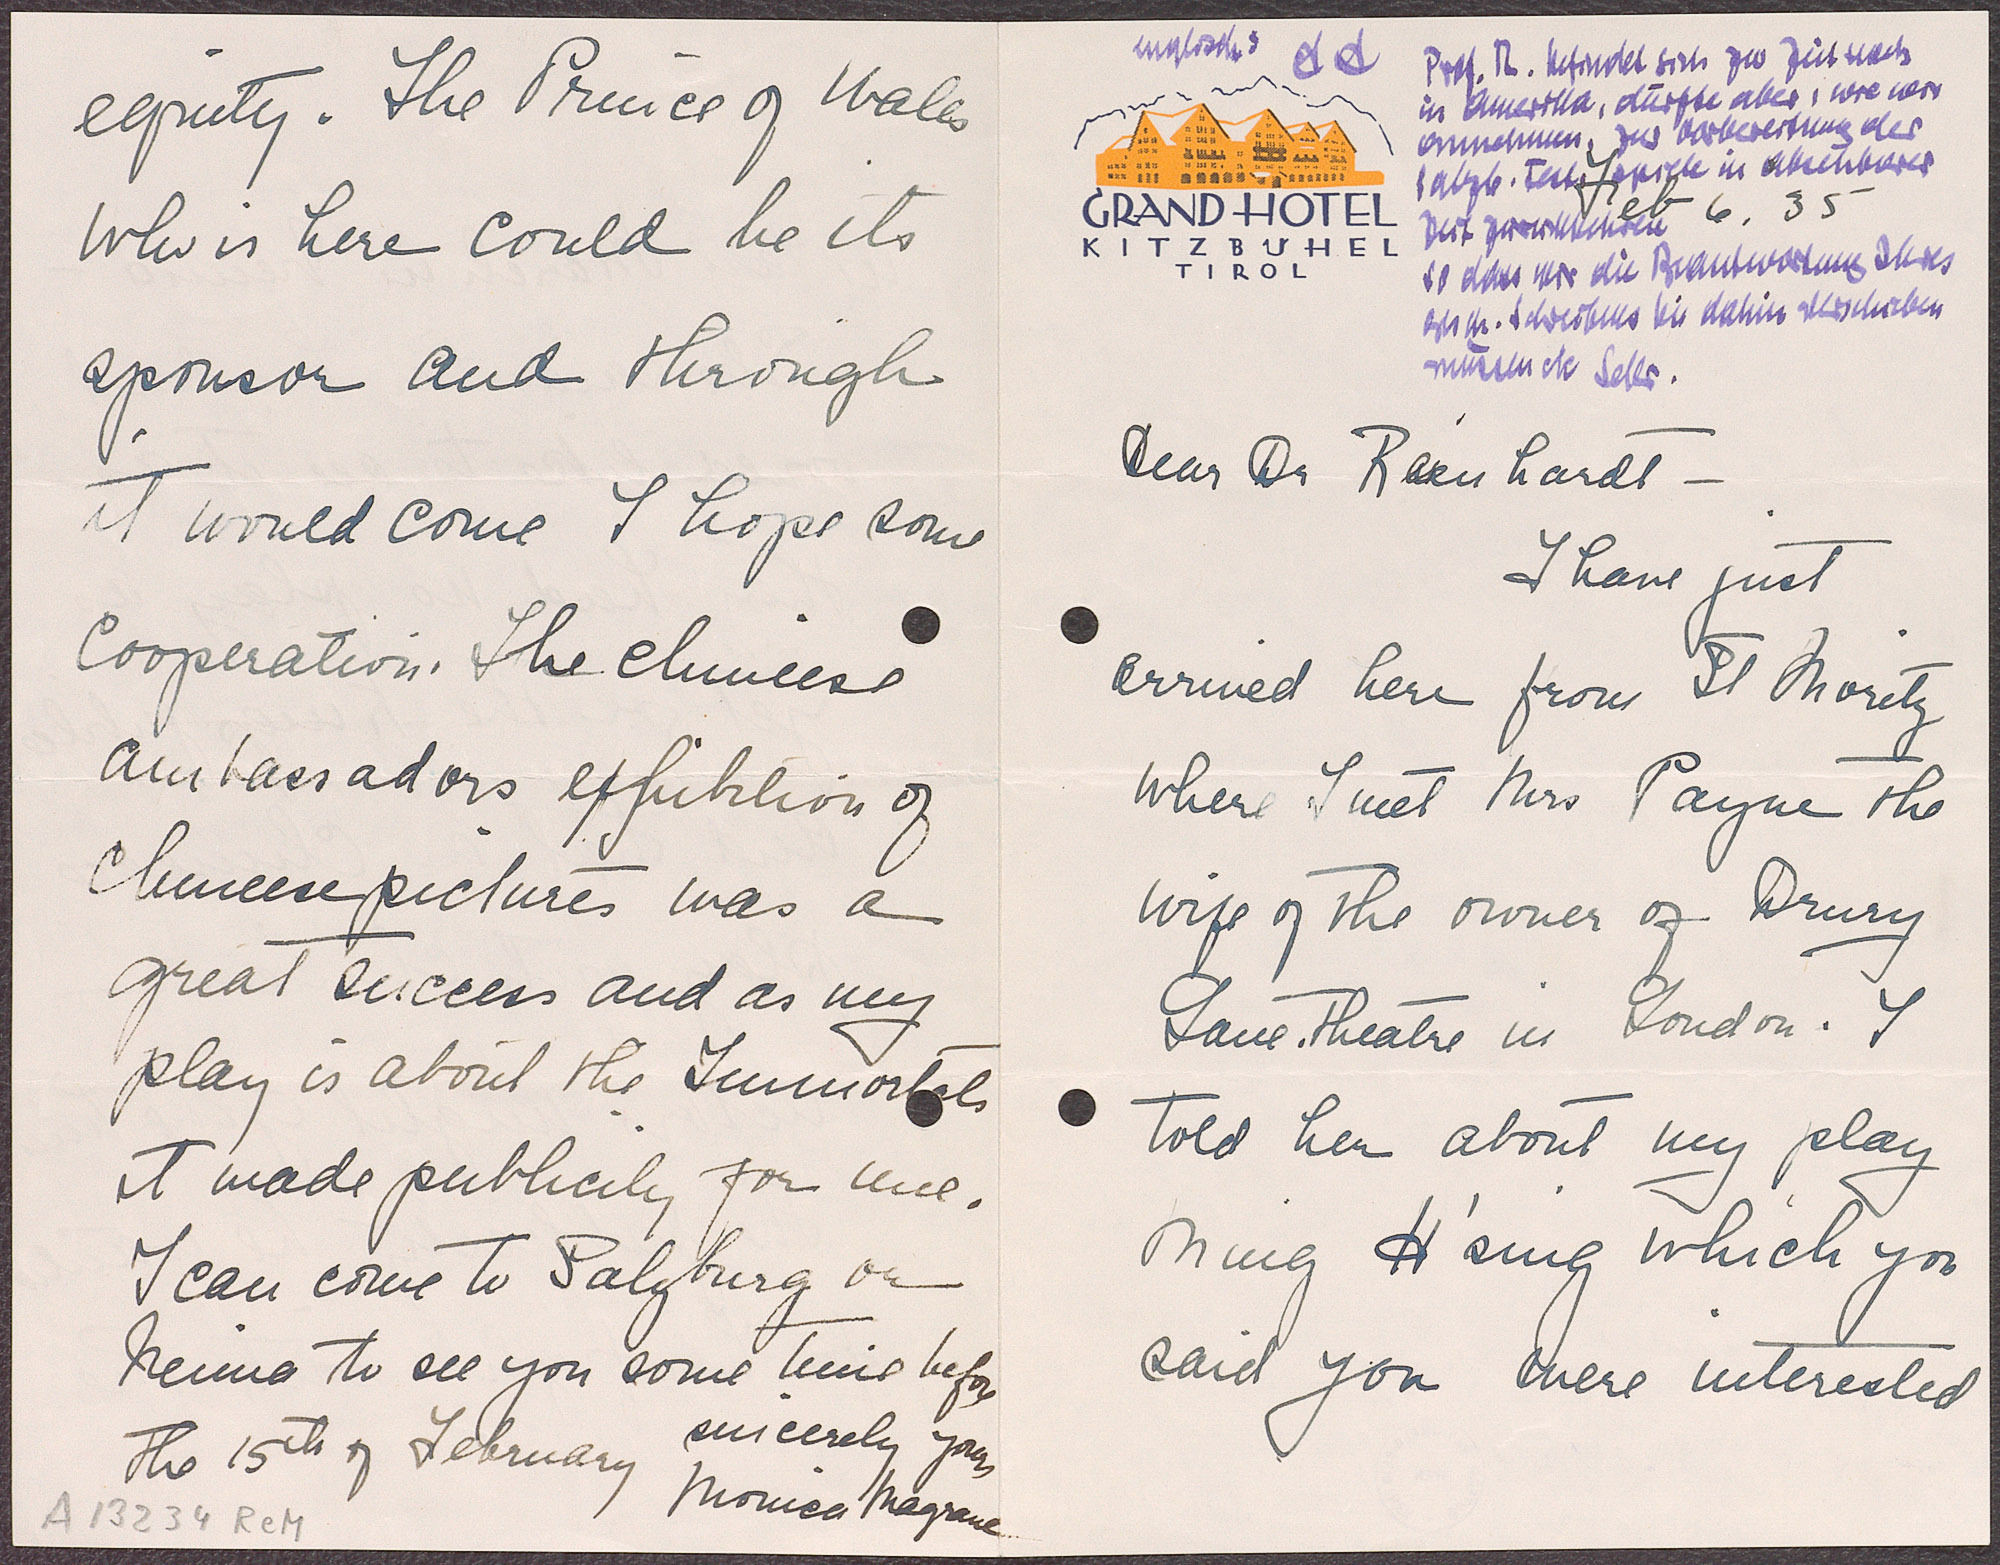 englisch
GRAND HOTEL
KITZBÜHEL
TIROL
Prof. R. befindet sich zur Zeit noch
in Amerika, dürfte aber, wie wir
annehmen, zur Vorbereitung der
Salzb. Festspiele in absehbarer
Zeit zurückkehren
so dass wir die Beantwortung Ihres
Schreibens bis dahin verschieben
müssen
Feb 6. 35
Dear Dr Reinhardt —
I have just
arrived here from St Moritz
where I met Mrs Payne the
wife of the owner of Drury
Lane Theatre in London. I
told her about my play
Ming H'sing which you
said you were interested
equity. The Prince of Wales
who is here could be its
sponsor and through
it would come I hope some
cooperation. The chineese
ambassadors exhibition of
chineese pictures was a
great success and as my
play is about the Immortals
it made publicity for me.
I can come to Salzburg or
Vienna to see you some time before
the 15th of February
sincerely yours
Monica Magrane
A 13234 ReM